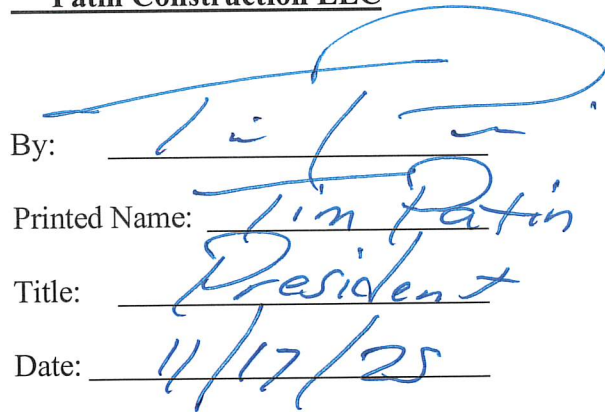 Patin Construction LLC
By:
Printed Name: Tim Patin
Title: President
Date: 11/17/25